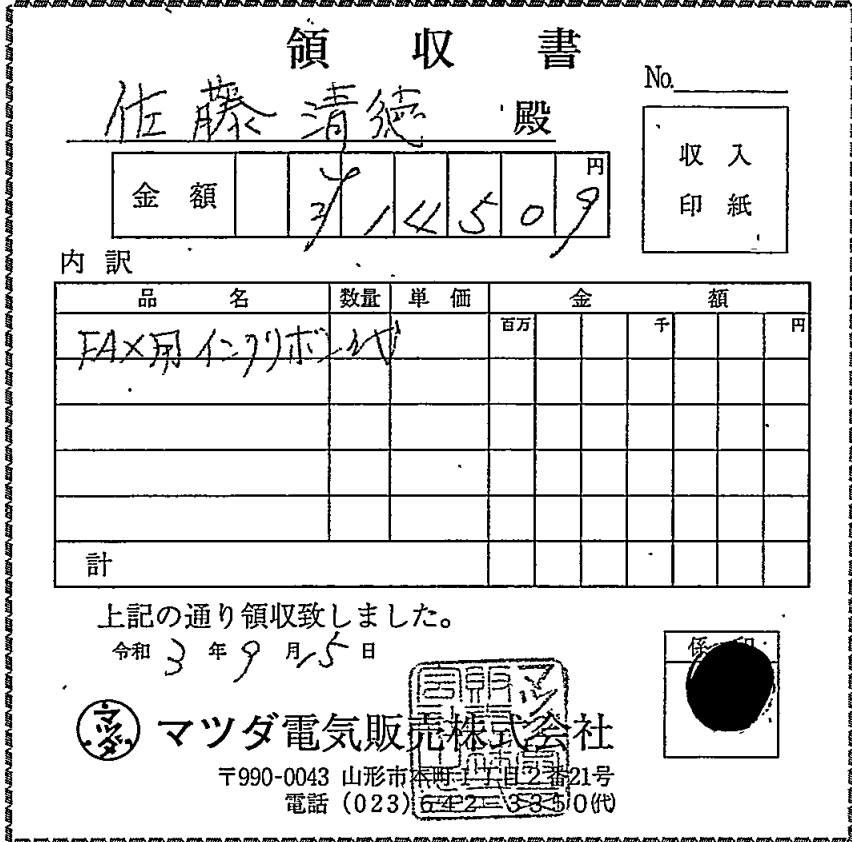 領収書
No.
佐藤清徳 殿
収入
印紙
金額 ¥14509円
内訳
品名 数量 単価 金額
百万 千 円
FAX用インクリボン代
計
上記の通り領収致しました。
令和3年9月15日
係印
マツダ マツダ電気販売株式会社
〒990-0043 山形市本町1丁目2番21号
電話 (023)642-3350(代)